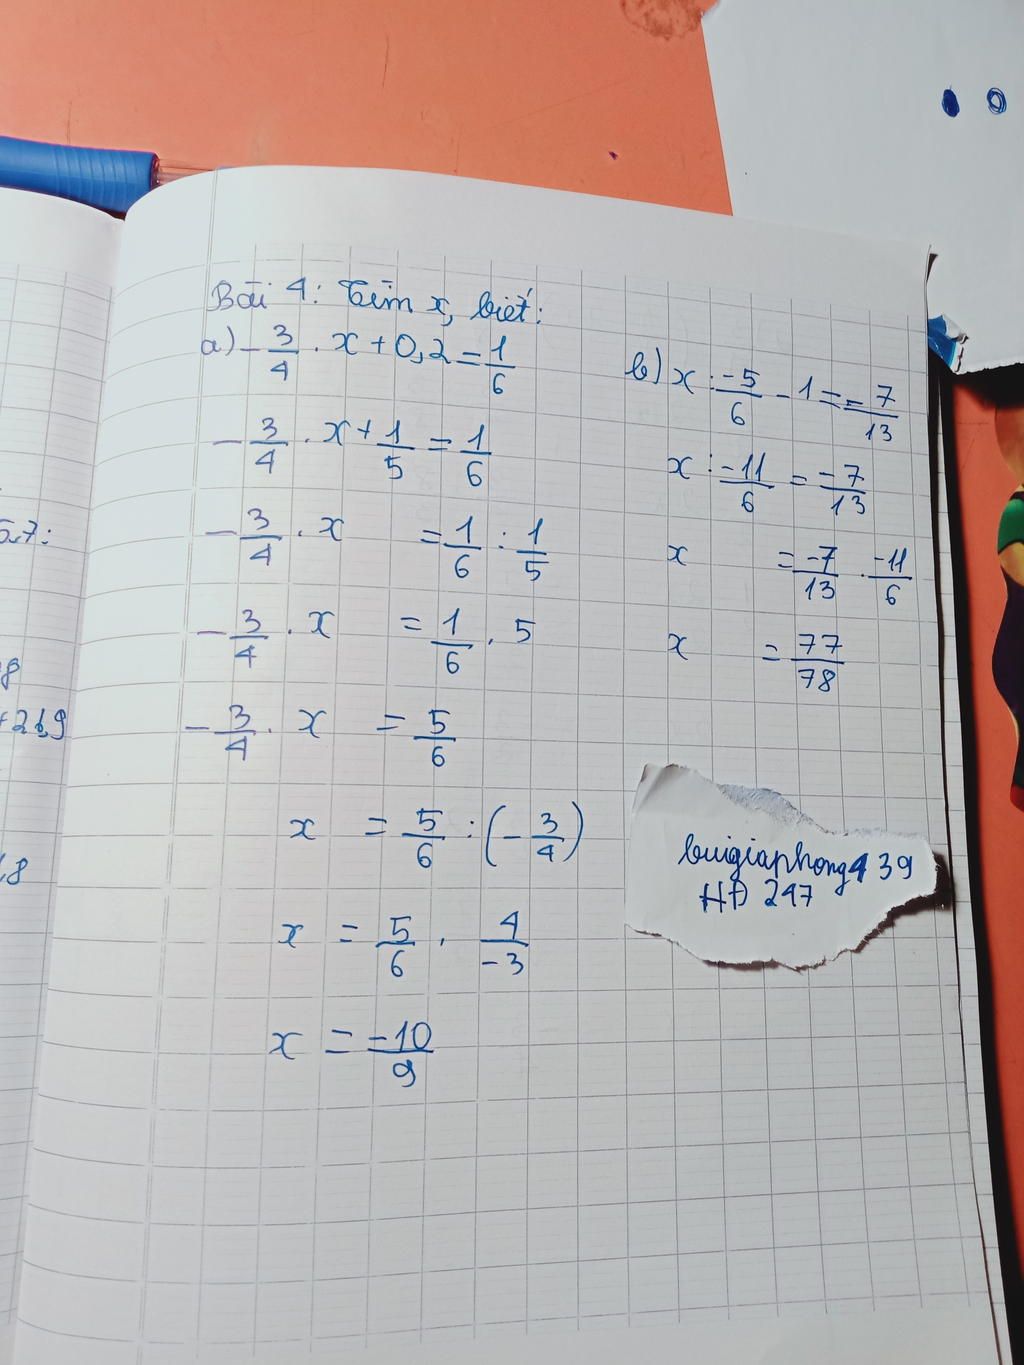 Bài 4: Tìm x, biết:
a) -3/4 . x + 0,2 = 1/6
-3/4 . x + 1/5 = 1/6
-3/4 . x = 1/6 : 1/5
-3/4 . x = 1/6 . 5
-3/4 . x = 5/6
x = 5/6 : (-3/4)
x = 5/6 . 4/-3
x = -10/9
b) x : -5/6 - 1 = -7/13
x : -11/6 = -7/13
x = -7/13 . -11/6
x = 77/78
buigiaphong4 39
HĐ 247